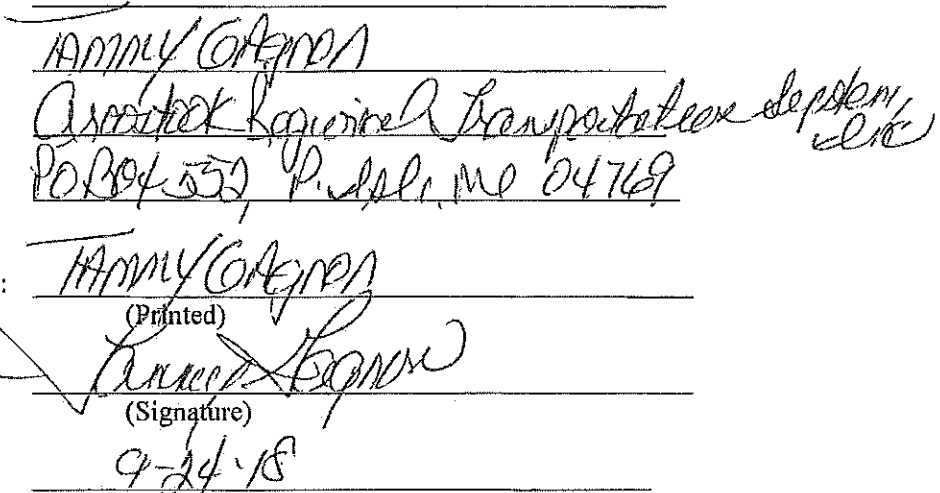 Tammy Gagnon
Aroostook Regional Transportation System, Inc
PO Box 552, P. Isle, ME 04769
: Tammy Gagnon
(Printed)
Tammy Gagnon
(Signature)
9-24-18